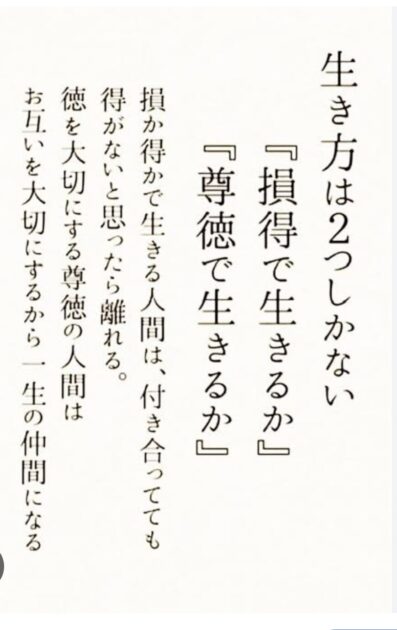 生き方は2つしかない
『損得で生きるか』
『尊徳で生きるか』
損か得かで生きる人間は、付き合ってても
得がないと思ったら離れる。
徳を大切にする尊徳の人間は
お互いを大切にするから一生の仲間になる